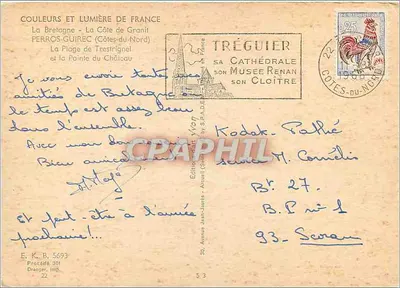 COULEURS ET LUMIÈRE DE FRANCE
La Bretagne - La Côte de Granit
PERROS-GUIREC (Côtes-du-Nord)
La Plage de Trestrignel
et la Pointe du Château
TRÉGUIER
SA CATHÉDRALE
SON MUSEE RENAN
SON CLOITRE
22
CÔTES-DU-NORD
Je vous envoie toutes mes
amitiés de Bretagne où
le temps est assez beau
dans l'ensemble.
Avec mon
Bien amicalement
Et peut-être à l'année
prochaine!...
E. K. B. 5693
22
Yvon
Kodak-Pathé
service M. Cornélis
Bt 27
B.P. n° 1
93 -
CPARAMA